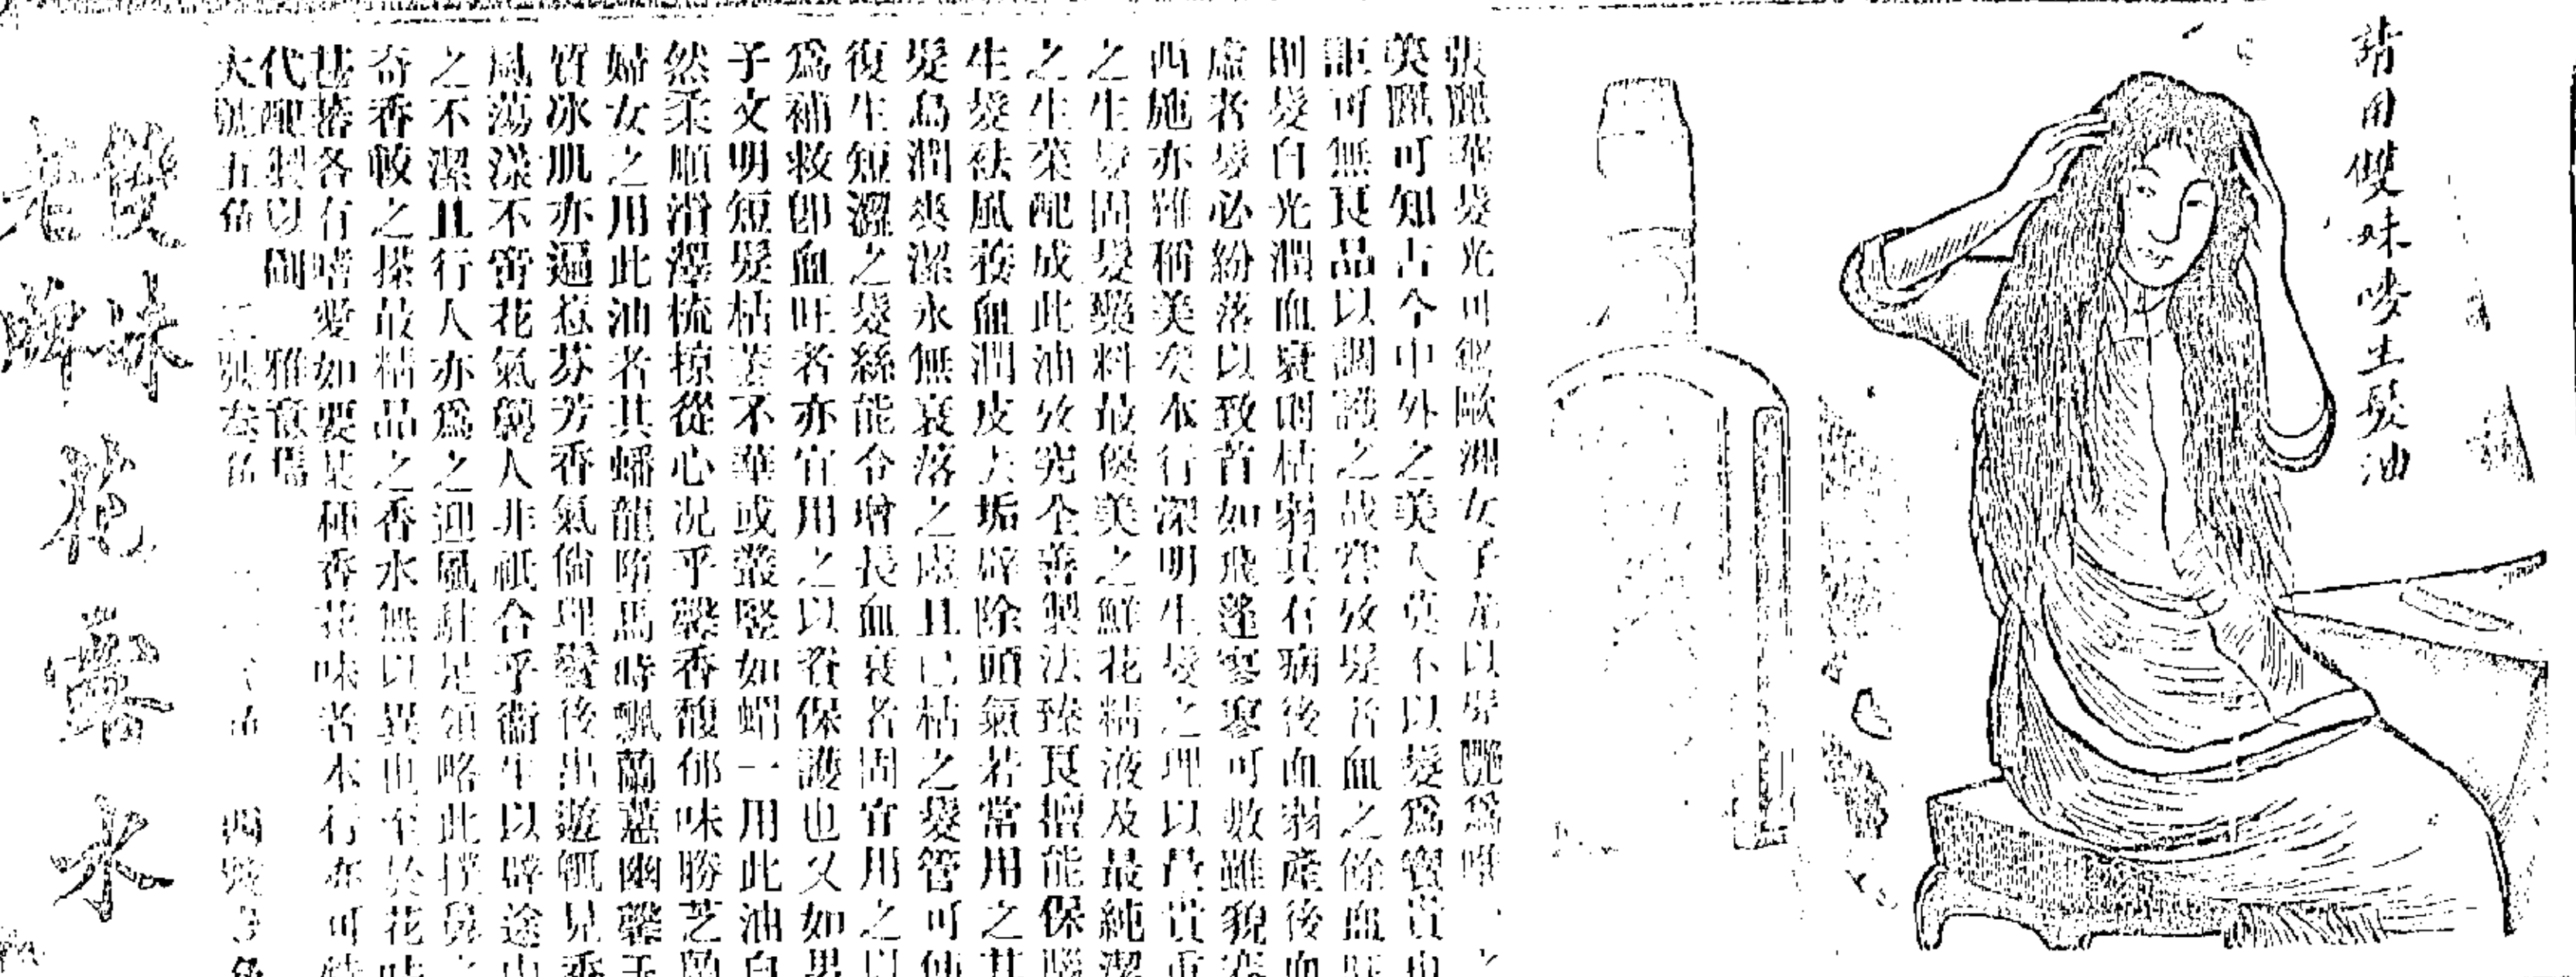 請用雙妹嘜生髮油
張麗華髮光可鑑歐洲女子尤以髮艷為唯
美麗可知古今中外之美人莫不以髮為寶貴也
詎可無良品以調護之哉窃攷髮者血之餘血旺
則髮自光潤血衰則枯弱其有病後血弱產後血
虛者髮必紛落以致首如飛蓬寥寥可數雖貌
西施亦難稱美矣本行深明生髮之理以最貴重
之生髮固髮藥料最優美之鮮花精液及最純潔
之生菜配成此油攷究全善製法臻良擅能保腦
生髮祛風養血潤皮去垢辟除頭氣若常用之其
髮烏潤爽潔永無衰落之虞且已枯之髮管可使
復生短澀之髮絲能令增長血衰者固宜用之以
為補救卽血旺者亦宜用之以資保護也又如男
子文明短髮枯萎不華或叢豎如蝟一用此油自
然柔順滑澤梳掠從心況乎馨香馥郁味勝芝蘭
婦女之用此油者其蟠龍墮馬時飄蘭蕙幽馨玉
質冰肌亦逼惹芬芳香氣倘理鬢後出遊輒見香
風蕩漾不啻花氣襲人非祇合乎衞生以辟途中
之不潔且行人亦為之迎風駐足領略此撲鼻之
奇香較之搽最精品之香水無以異也至於花味
甚蕃各有嗜愛如要某種香花味者本行亦可特
代配製以副 雅意焉
大號五角 二號叁角 四號
雙妹
老牌
花露水